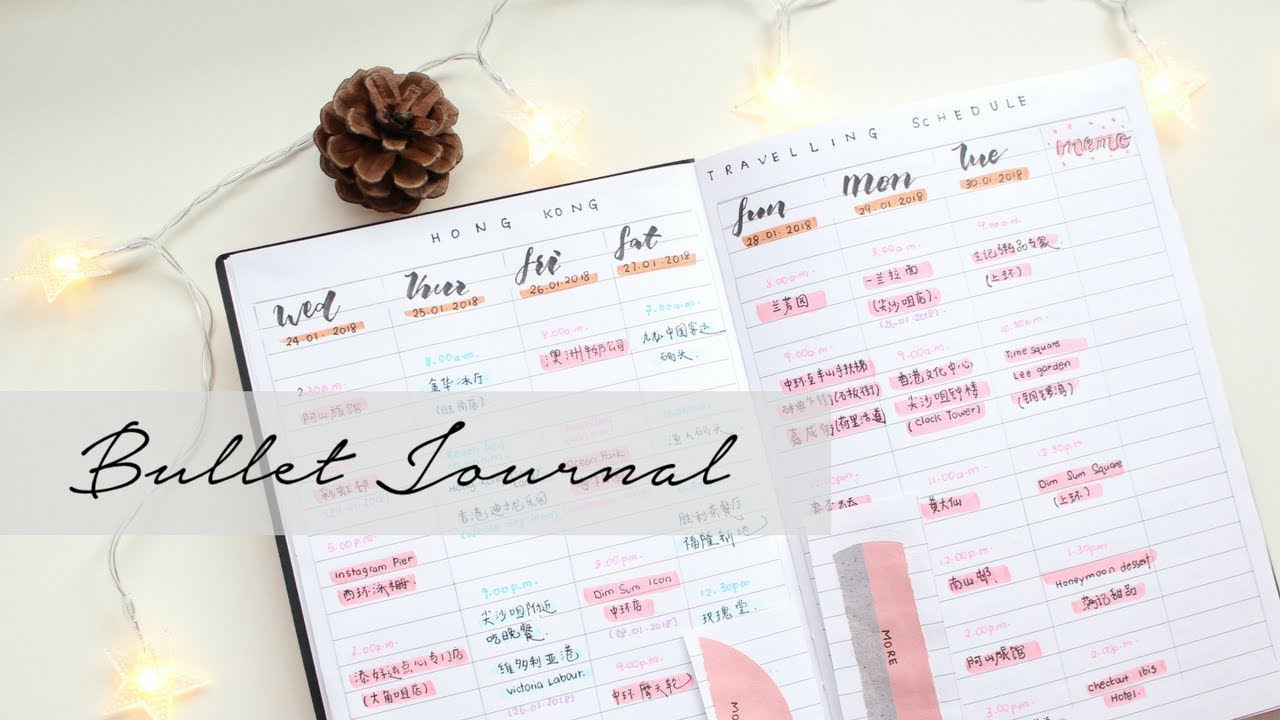 HONG KONG
TRAVELLING SCHEDULE
wed
24.01.2018
2.30p.m.
阿山旅馆
彩虹邨
5.00p.m.
Instagram Pier
西环泳棚
7.00p.m.
添好运点心专门店
(大角咀店)
Thur
25.01.2018
8.00a.m.
金华冰厅
(旺角店)
香港迪士尼乐园
(whole day long)
9.00p.m.
尖沙咀附近
吃晚餐.
维多利亚港
victoria Labour.
(26.01.2018)
fri
26.01.2018
8.00a.m.
澳洲牛奶公司
Ocean Park
8.00p.m.
Dim Sum Icon
中环店
(28.01.2018)
9.00p.m.
中环摩天轮
sat
27.01.2018
7.00a.m.
中国客运
码头
渔人码头
胜利茶餐厅
福隆新地
12.30p.m
玫瑰堂.
sun
28.01.2018
8.00a.m.
兰芳园
9.00a.m.
中环至半山手扶梯
(石板街)
嘉咸街(荷里活道)
12.00p.m.
mon
29.01.2018
8.00a.m.
一兰拉面
(尖沙咀店).
(26.01.2018)
9.00a.m.
香港文化中心
尖沙咀钟楼
(Clock Tower)
11.00a.m.
黄大仙
12.00p.m.
南山邨.
2.00p.m.
阿山旅馆
3.00p.m.
Tue
30.01.2018
9.00a.m.
生记粥品专家
(上环)
10.30a.m.
Time square
Lee garden
(铜锣湾)
12.30p.m
Dim Sum Square
(上环)
1.30p.m.
Honeymoon dessert
满记甜品
2.00p.m.
checkout ibis
Hotel.
memo
MORE
MO
Bullet Journal